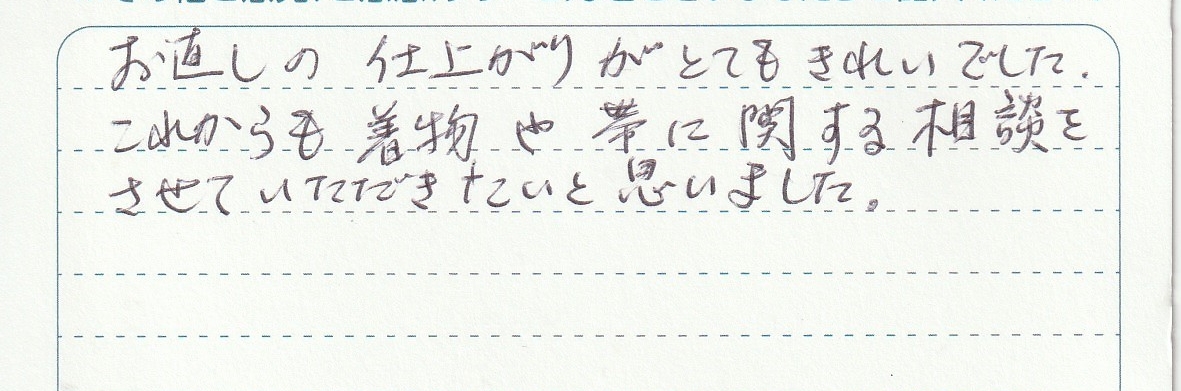 お直しの仕上がりがとてもきれいでした.
これからも着物や帯に関する相談を
させていただきたいと思いました。